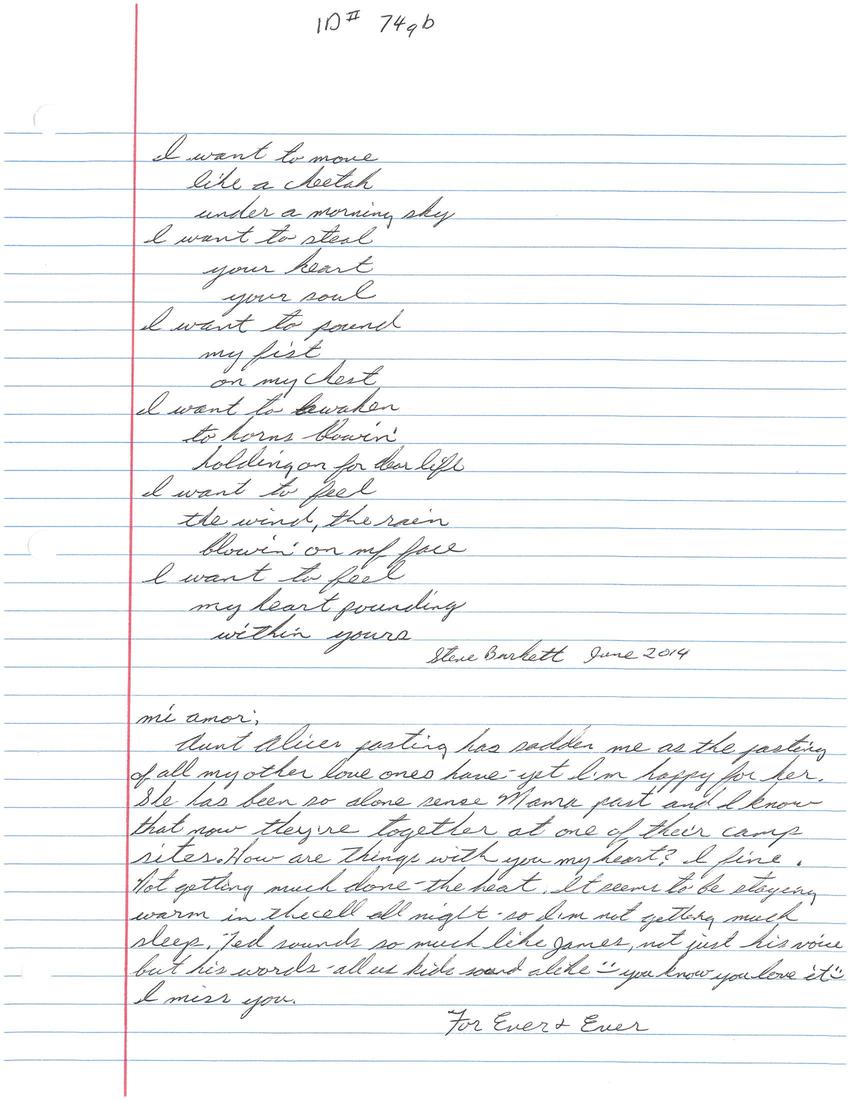 ID# 74qb
I want to move
like a cheetah
under a morning sky
I want to steal
your heart
your soul
I want to pound
my fist
on my chest
I want to awaken
to horns blowin'
holding on for dear life
I want to feel
the wind, the rain
blowin' on my face
I want to feel
my heart pounding
within yours
Steve Burkett June 2014
mi amor;
Aunt Alices pasting has sadden me as the pasting
of all my other love ones have - yet I'm happy for her.
She has been so alone sense Mama past and I know
that now they're together at one of their camp
sites. How are things with you my heart? I fine.
Not getting much done - the heat. It seems to be staying
warm in the cell all night - so I'm not getting much
sleep. Ted sounds so much like James, not just his voice
but his words - all us kids sound alike :) you know you love it :)
I miss you.
For Ever & Ever